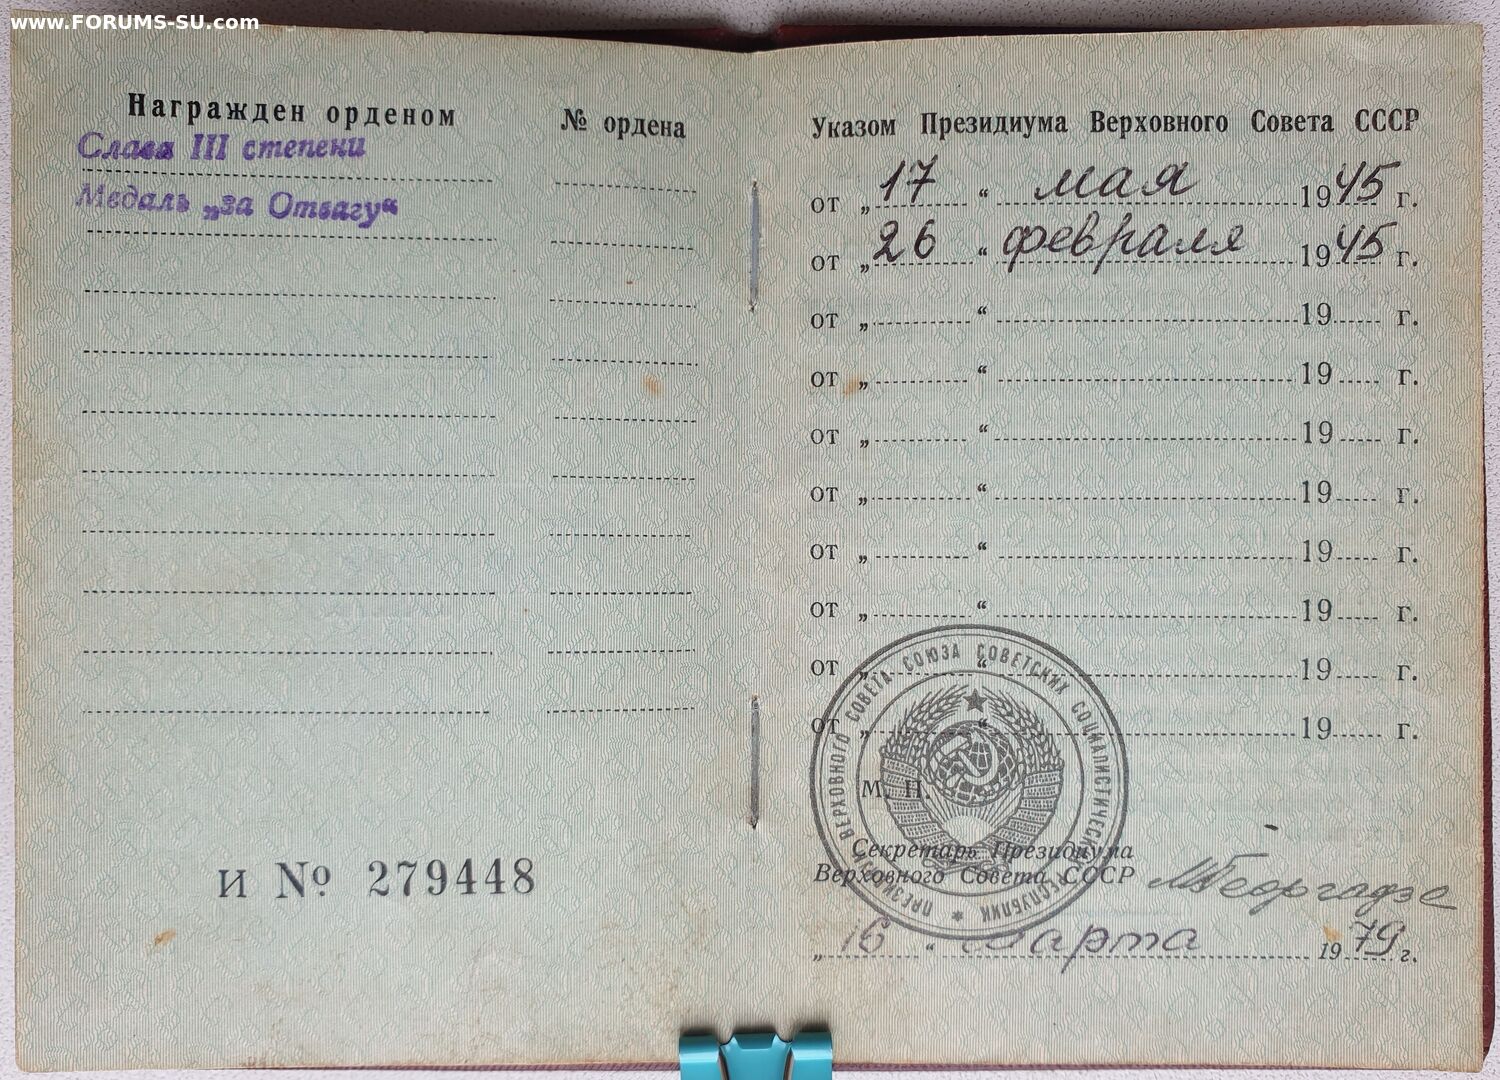 www.FORUMS-SU.com
Награжден орденом
№ ордена
Слава III степени
Медаль „за Отвагу“
И № 279448
Указом Президиума Верховного Совета СССР
от „17“ мая 1945 г.
от „26“ февраля 1945 г.
от „ “ 19 г.
от „ “ 19 г.
от „ “ 19 г.
от „ “ 19 г.
от „ “ 19 г.
от „ “ 19 г.
от „ “ 19 г.
от „ “ 19 г.
ПРЕЗИДИУМ ВЕРХОВНОГО СОВЕТА СОЮЗА СОВЕТСКИХ СОЦИАЛИСТИЧЕСКИХ РЕСПУБЛИК
М. П.
Секретарь Президиума
Верховного Совета СССР
МГеоргадзе
„16“ марта 1979 г.